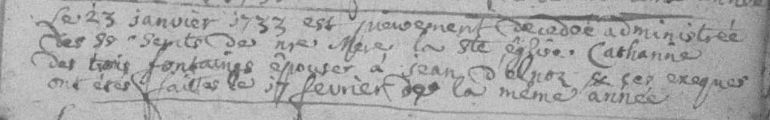 Le 23 janvier 1733 est pieusement decedeé administrée
des ss sepits de nre Mere la ste église. Catharine
des trois fontaines épouser à jean Delnoz & ses exeques
ont étés faittes le 17 fevrier de la même année